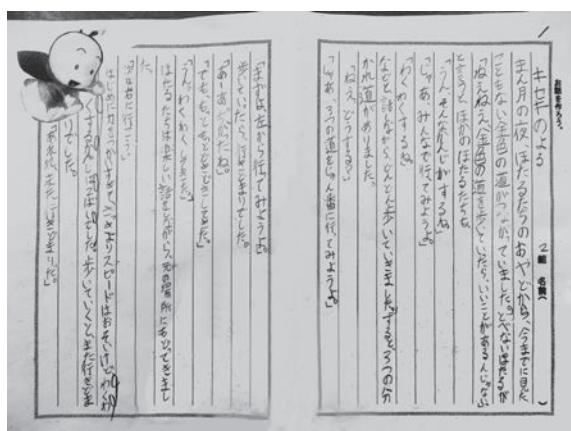 お話を作ろう。
2組 名前( )
キセキのよる
まん月の夜、ほたるたちのおやどから、今までに見た
こともない金色の道がつながっていました。とべないほたるが
「ねえねえ、金色の道を歩いていたら、いいことがあるんじゃない」
と言うと、ほかのほたるたちも
「うん、そんなかんじがするね」
「じゃあ、みんなで行ってみようよ。」
「わくわくするね」
などと話しながら、どんどん歩いていきました。すると、3つの分
かれ道がありました。
「ねえ、どうする?」
「じゃあ、3つの道をじゅん番に行ってみようよ。」
「まずは、左から行ってみようよ。」
歩いていたら、行きどまりでした。
「あーあ、ざんねんだったね。」
「でも、もっともっとどきどきしてきた。」
「うん、わくわくしてきた。」
ほたるたちは楽しい話をしながら、元の場所にもどってきまし
た。
「次は右に行こう。」
はじめに
スピードはおそいけどわくわ
くするかんじは
でした。歩いていくと、また行きどま
りでした。
「あれれ、また行きどまりだ。」